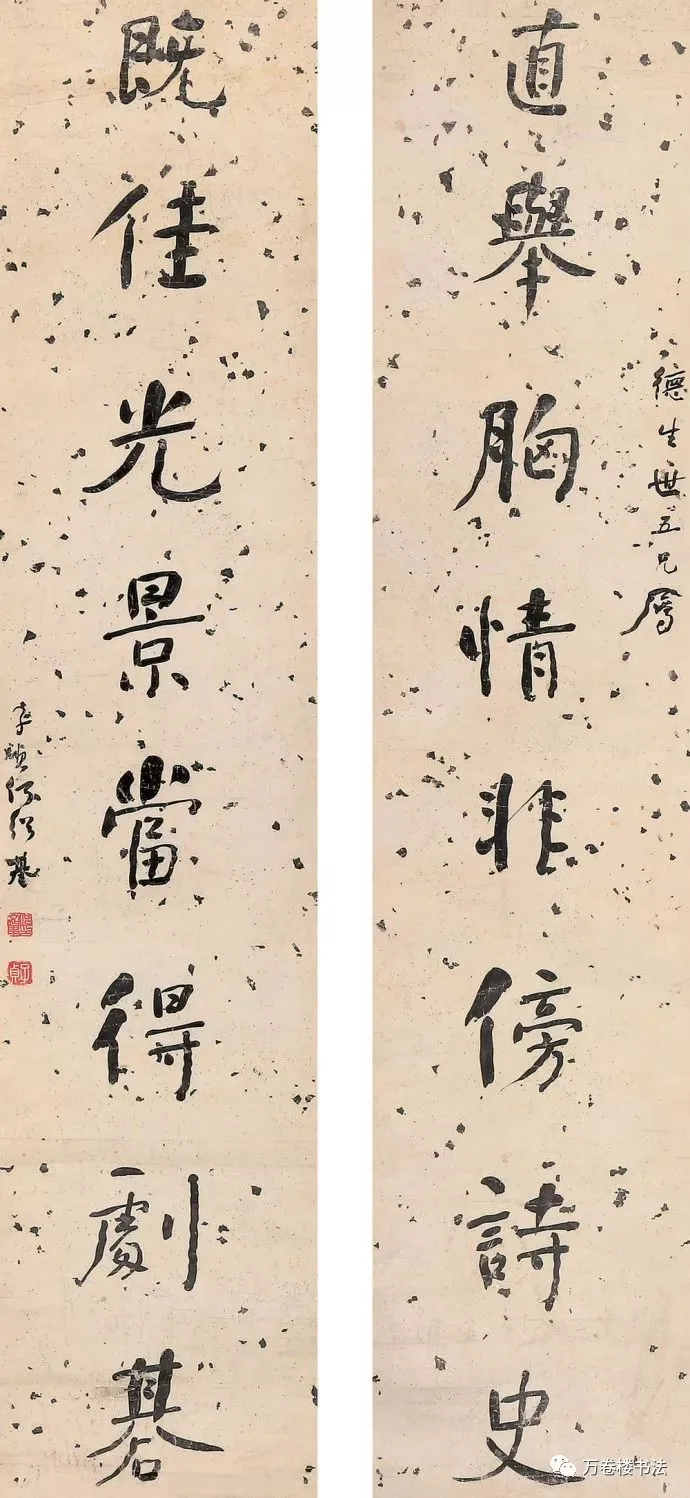 德生世五兄属
直舉胸情非傍詩史
既佳光景當得劇棊
子貞何紹基
万卷楼书法